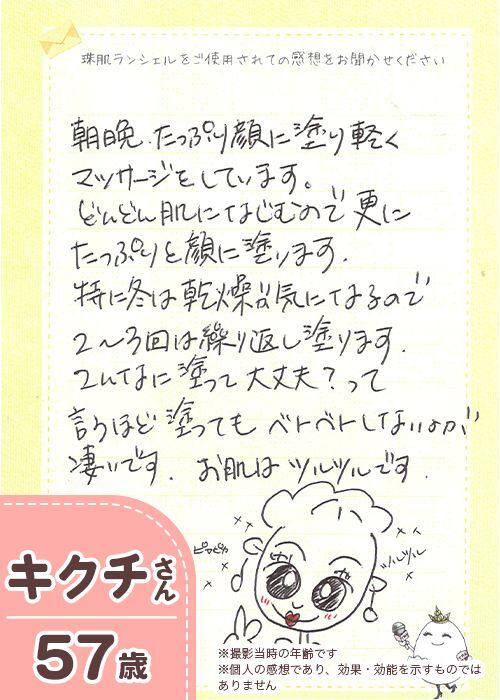 珠肌ランシェルをご使用されての感想をお聞かせください
朝晩、たっぷり顔に塗り軽く
マッサージをしています。
どんどん肌になじむので更に
たっぷりと顔に塗ります。
特に冬は乾燥が気になるので
2～3回は繰り返し塗ります。
こんなに塗って大丈夫？って
言うほど塗ってもベトベトしないのが
凄いです。お肌はツルツルです。
ピカピカ
ツルツル
キクチさん
57歳
※撮影当時の年齢です
※個人の感想であり、効果・効能を示すものでは
ありません